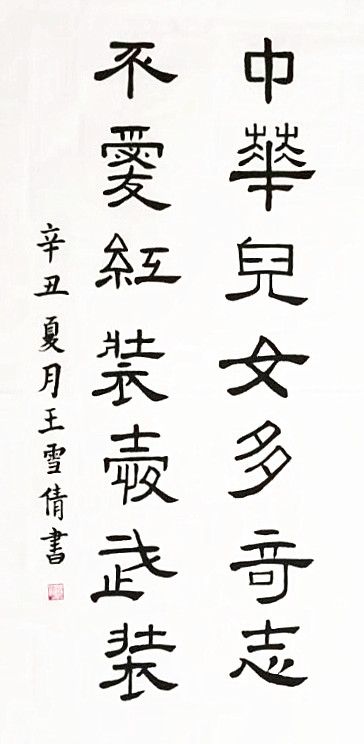 中華兒女多竒志
不愛紅裝愛武裝
辛丑夏月王雪倩書